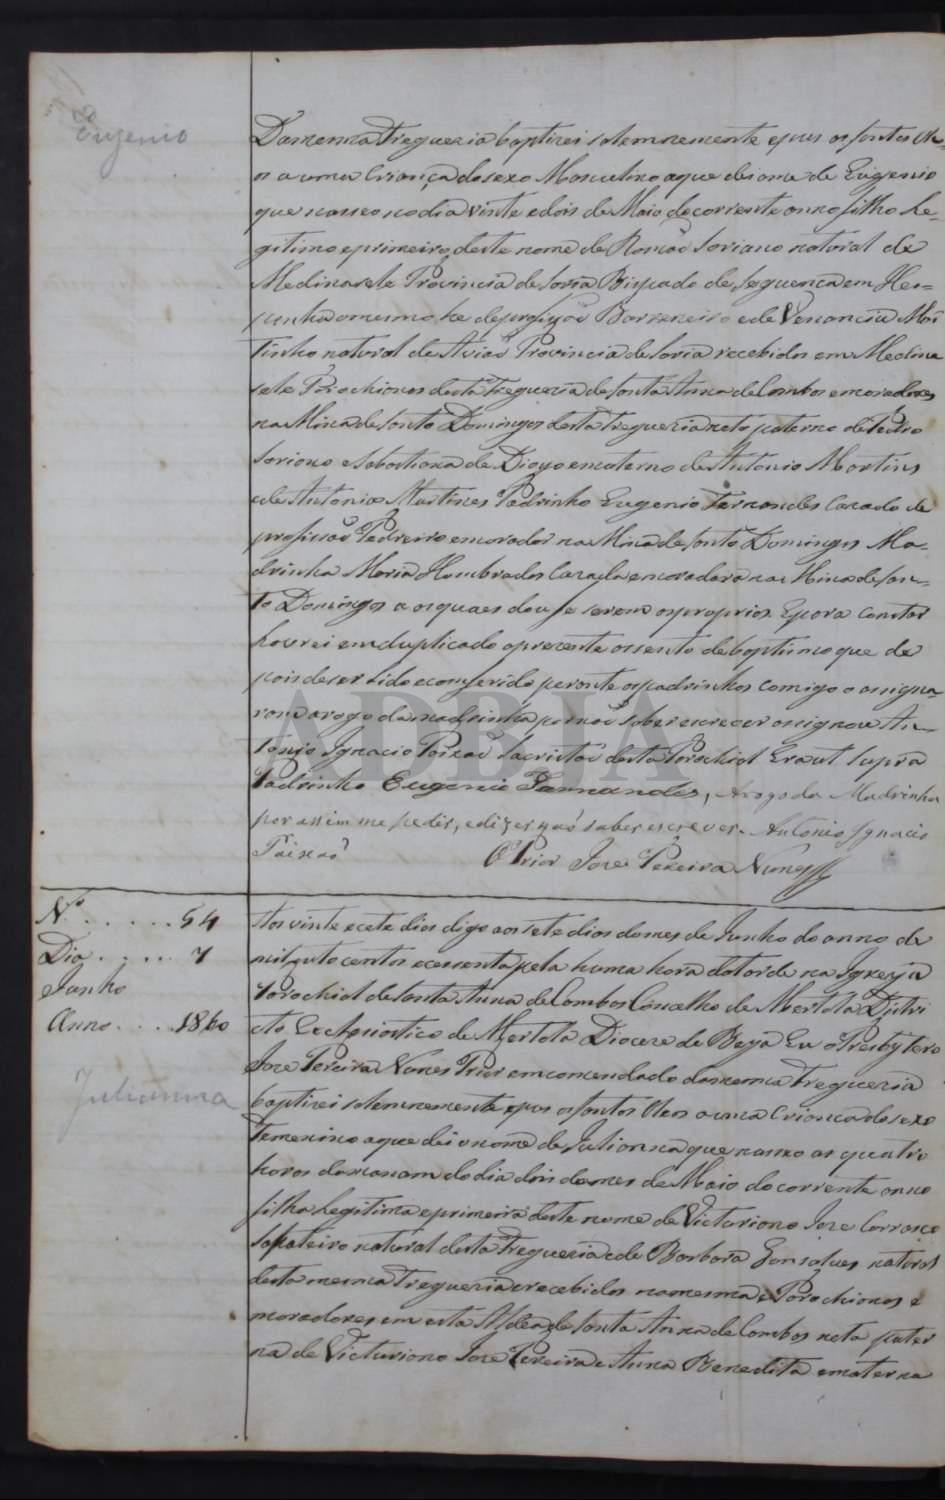 Eugenio
Damesma Freguezia baptizei solemnemente e puz os santos Ole-
os a uma Criança do sexo Masculino aque dei o nome de Eugenio
que nasceo no dia vinte e dois de Maio do corrente anno filho Le-
gitimo e primeiro deste nome de Romão Soriano natural de
Medinasele Provincia de Soria Bispado de Seguença em Hes-
panha omesmo he de profição Barreneiro e de Venancia Mar
tinho natural de Provincia de Soria recebidos em Medina
sele Parochianos desta Freguezia de Santa Anna de Cambas e moradores
na Mina de Santo Domingos desta Freguezia neto paterno de Pedro
Soriano e Sabastiana de Diogo e materno de Antonio Martins
e de Antonia Martines Padrinho Eugenio Fernandes Cazado de
profissão Pedreiro e morador na Mina de Santo Domingos Ma-
drinha Maria Hombrados Cazada e moradora na Mina de San-
to Domingos a os quaes dou fe serem os proprios. E para constar
lavrei em duplicado o prezente assento de baptismo que de
pois de ser lido e conferido perante os padrinhos comigo o assigna-
ram a rogo da madrinha por não saber escrever assignou An-
tonio Ignacio Paixão Sacristão desta Parochial Era ut supra
Padrinho Eugenio Fernandes, Arogo da Madrinha
por assim me pedir, e dizer não saber escrever. Antonio Ignacio
Paixão O Prior Joze Pereira Nunes
ADBJA
Nº ...... 54
Dia ..... 7
Junho
Anno .... 1860
Julianna
Aos vinte e cete dias digo aos sete dias do mes de Junho do anno de
mil outo centos e cessenta pela huma hora da tarde na Igreja
Parochial de Santa Anna de Cambas Concelho de Mertola Distri
cto Ecclesiastico de Mertola Diocese de Beja Eu o Presbytero
Joze Pereira Nunes Prior emcomendado da mesma Freguezia
baptizei solemnemente e puz os santos Oleos a uma Criança do sexo
Femenino aque dei o nome de Julianna que nasceo as quatro
horas da manam do dia dois do mes de Maio do corrente anno
filha Legitima e primeira deste nome de Victuriano Joze Carrasco
Sapateiro natural desta Freguezia e de Barbora Gonsalves natural
desta mesma Freguezia e recebidos na mesma e Parochianos e
moradores em esta Aldea de Santa Anna de Cambas neta pater
na de Victuriano Joze Pereira e Anna Benedita e materna